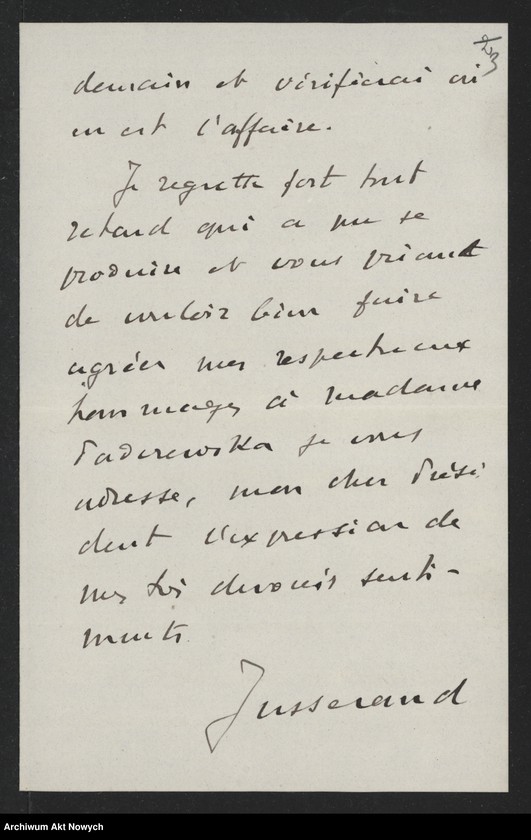 demain et vérifierai où
en est l'affaire.
Je regrette fort tout
retard qui a pu se
produire et vous priant
de vouloir bien faire
agréer mes respectueux
hommages à Madame
Paderewska je vous
adresse, mon cher Prési
dent l'expression de
mes très dévoués senti-
ments
Jusserand
Archiwum Akt Nowych